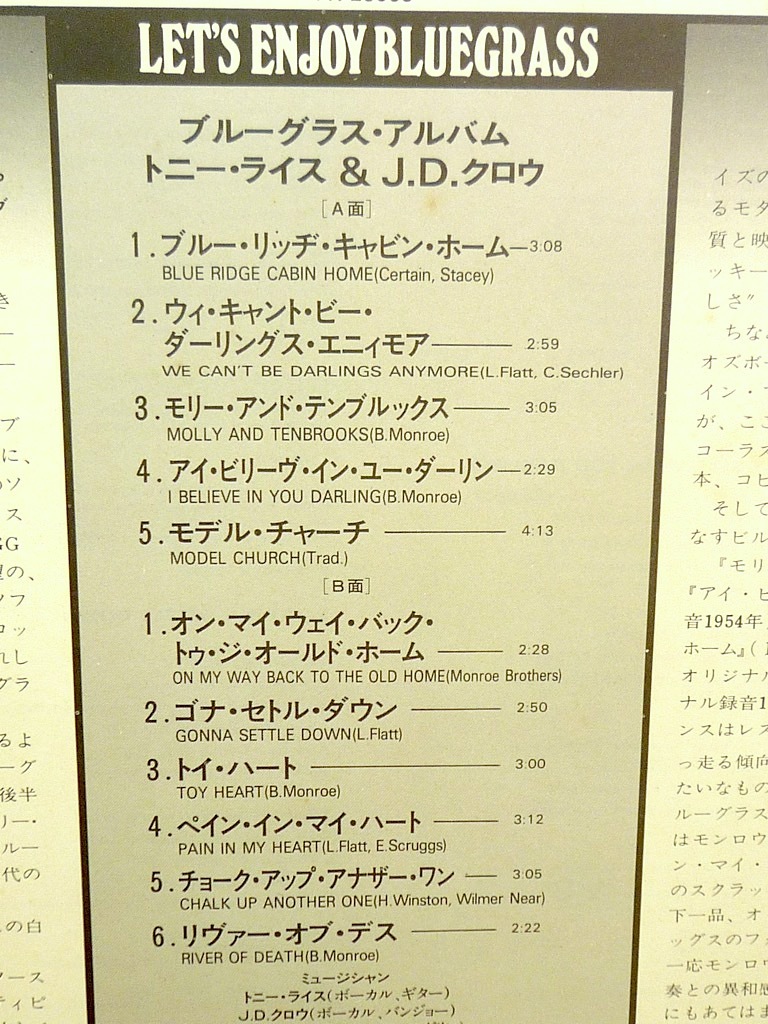 LET'S ENJOY BLUEGRASS
ブルーグラス・アルバム
トニー・ライス & J.D.クロウ
[A面]
1.ブルー・リッヂ・キャビン・ホーム—3:08
BLUE RIDGE CABIN HOME(Certain, Stacey)
2.ウィ・キャント・ビー・
ダーリングス・エニィモア—2:59
WE CAN'T BE DARLINGS ANYMORE(L.Flatt, C.Sechler)
3.モリー・アンド・テンブルックス—3:05
MOLLY AND TENBROOKS(B.Monroe)
4.アイ・ビリーヴ・イン・ユー・ダーリン—2:29
I BELIEVE IN YOU DARLING(B.Monroe)
5.モデル・チャーチ—4:13
MODEL CHURCH(Trad.)
[B面]
1.オン・マイ・ウェイ・バック・
トゥ・ジ・オールド・ホーム—2:28
ON MY WAY BACK TO THE OLD HOME(Monroe Brothers)
2.ゴナ・セトル・ダウン—2:50
GONNA SETTLE DOWN(L.Flatt)
3.トイ・ハート—3:00
TOY HEART(B.Monroe)
4.ペイン・イン・マイ・ハート—3:12
PAIN IN MY HEART(L.Flatt, E.Scruggs)
5.チョーク・アップ・アナザー・ワン—3:05
CHALK UP ANOTHER ONE(H.Winston, Wilmer Near)
6.リヴァー・オブ・デス—2:22
RIVER OF DEATH(B.Monroe)
ミュージシャン
トニー・ライス(ボーカル、ギター)
J.D.クロウ(ボーカル、バンジョー)
イズの
るモダ
質と映
ッキー
しさ"
ちな
オズボー
イン・
が、ここ
コーラス
本、コピ
そして
なすビル
『モリ
『アイ・ビ
音1954年
ホーム』(
オリジナル
ナル録音1
ンスはレス
っ走る傾向
たいなもの
ルーグラス
はモンロウ
ン・マイ・
のスクラッ
下一品、オ
ッグスのフ
一応モンロウ
奏との異和感
にもあてはま